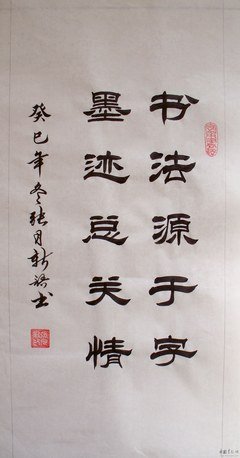 书法源于字
墨迹总关情
癸巳年冬张月新书